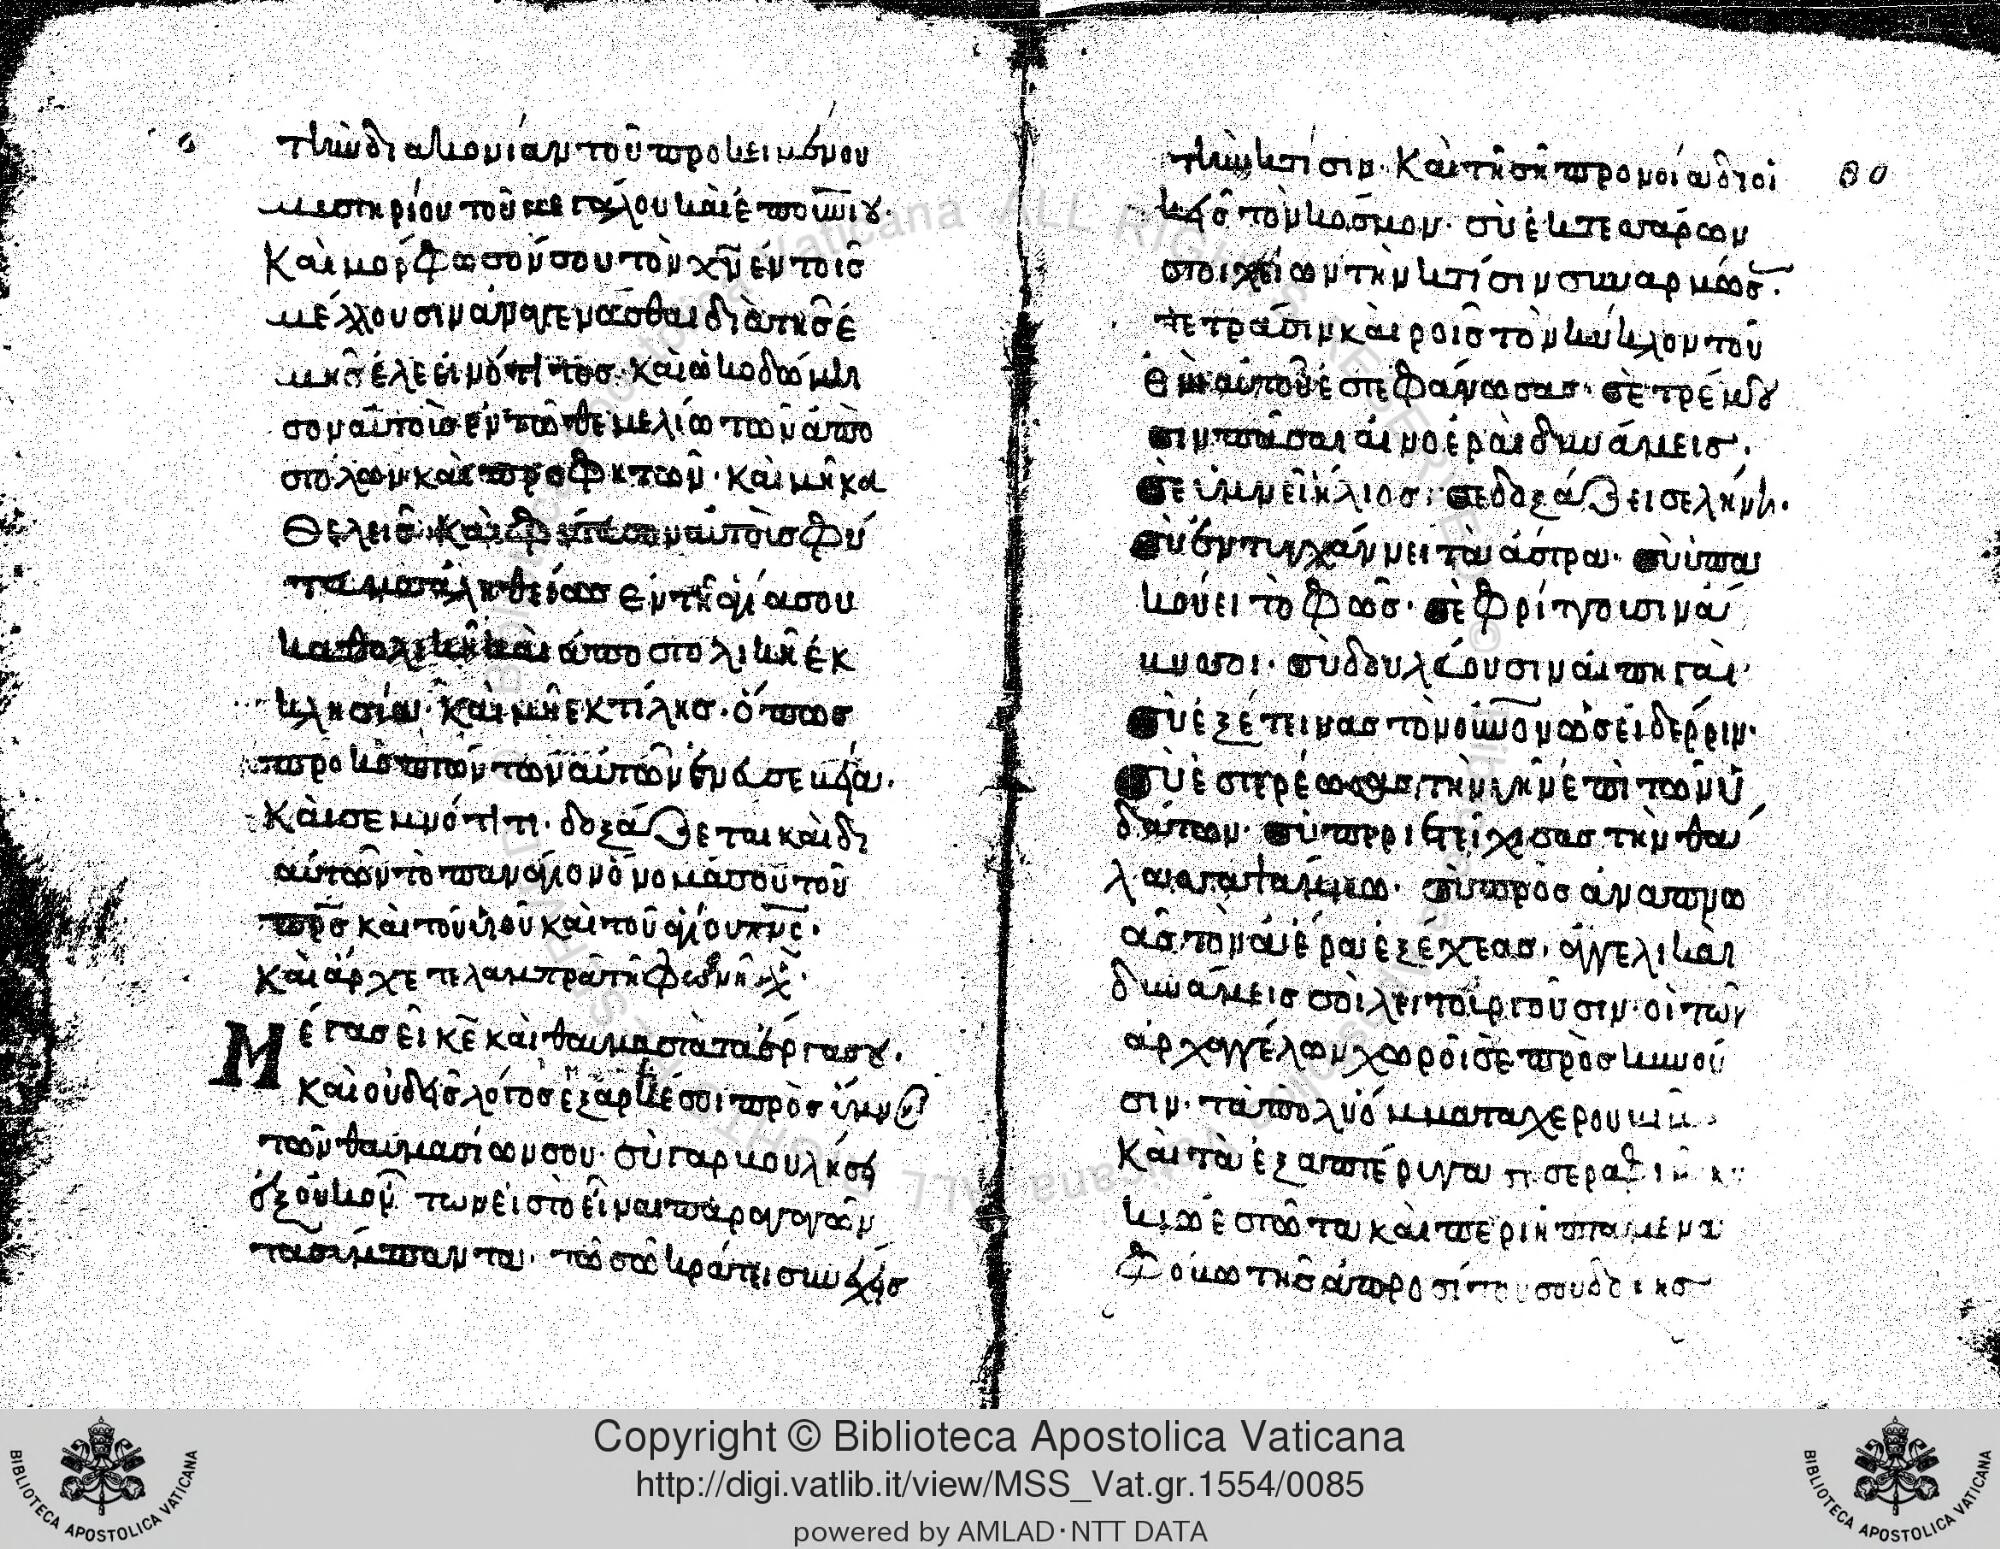 την διακονίαν τοῦ προκειμένου
μυστηρίου τοῦ μεγάλου καὶ ἐπουνίου.
Καὶ μόρφωσόν σου τὸν χν ἐν τοῖς
μέλλουσιν ἀναγεννᾶσθαι διὰ τῆς ἐ
μῆς ἐλεεινότητος. καὶ οἰκοδόμη
σον αὐτοὺς ἐν τῶ θεμελίω τῶν ἀπο
στόλων καὶ προφητῶν. καὶ μὴ κα
θέλεις. Καὶ φύτευσον αὐτοὺς φύ
τευμα ἀληθείας ἐν τῆ ἁγία σου
καθολικῆ καὶ ἀποστολικῆ ἐκ
κλησία. καὶ μὴ ἐκτίλης. ὅπως
προκοπτόντων αὐτῶν ἐν εὐσεβεία.
Καὶ σεμνότητι. δοξάζεται καὶ δι
αὐτῶν τὸ πανάγιον ὄνομά σου τοῦ
πρς καὶ τοῦ υἱοῦ καὶ τοῦ ἁγίου πνς.
καὶ ἄρχεται λαμπρᾶ τῆ φωνῆ
Μέγας εἶ κε καὶ θαυμαστὰ τὰ ἔργα σου.
Καὶ οὐδεὶς λόγος ἐξαρκέσει πρὸς ὕμνον
τῶν θαυμασίων σου. σὺ γαρ βουλήσει
ἐξ οὐκ ὄντων εἰς τὸ εἶναι παραγαγὼν
τὰ σύμπαντα. τῶ σῶ κράτει συνέχεις
την κτίσιν. Καὶ τῆ σῆ προνοία διοι 80
κεῖς τὸν κόσμον. σὺ ἐκ τεσσάρων
στοιχείων τὴν κτίσιν συναρμόσας.
τέτρασιν καιροῖς τὸν κύκλον τοῦ
ἐνιαυτοῦ ἐστεφάνωσας. σὲ τρέμου
σιν πᾶσαι αἱ νοεραὶ δυνάμεις.
σὲ ὑμνεῖ ἥλιος. σὲ δοξάζει σελήνη.
σὺ ἐντυγχάνει τὰ ἄστρα. σὺ ὑπα
κούει τὸ φῶς. σὲ φρίττουσιν ἄ
βυσσοι. σὺ δουλεύουσιν αἱ πηγαί.
σὺ ἐξέτεινας τὸν οὐνον ὡσεὶ δέρριν.
σὺ ἐστερέωσας τὴν γῆν ἐπὶ τῶν ὑ
δάτων. σὺ περιετείχισας τὴν θά
λασσαν ψάμμω. σὺ πρὸς ἀναπνο
ὰς τὸν ἀέρα ἐξέχεας. ἀγγελικαὶ
δυνάμεις σοὶ λειτουργοῦσιν. οἱ τῶν
ἀρχαγγέλων χοροὶ σὲ προσκυνοῦ
σιν. τὰ πολυόμματα χερουβιμ
Καὶ τὰ ἑξαπτέρυγα σεραφιμ
κύκλω ἑστῶτα καὶ περιϊπτάμενα
φόβω τῆς ἀπροσίτου σου δόξης
Copyright © Biblioteca Apostolica Vaticana
http://digi.vatlib.it/view/MSS_Vat.gr.1554/0085
powered by AMLAD·NTT DATA
BIBLIOTECA APOSTOLICA VATICANA
BIBLIOTECA APOSTOLICA VATICANA